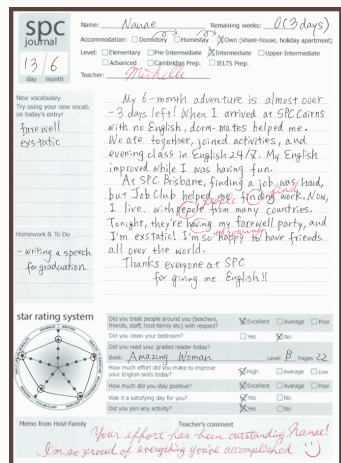 spc journal
13/6
day month
Name: Nanae Remaining weeks: 0 (3 days)
Accommodation: Dormitory Homestay Own (share-house, holiday apartment)
Level: Elementary Pre-Intermediate Intermediate Upper-Intermediate
Advanced Cambridge Prep. IELTS Prep.
Teacher: Michelle
New vocabulary
Try using your new vocab. on today's entry!
farewell
exstatic
Homework & To Do
- writing a speech
for graduation
My 6-month adventure is almost over
- 3 days left! When I arrived at SPC Cairns
with no English, dorm-mates helped me.
We ate together, joined activities, and
evening class in English 24/7. My English
improved while I was having fun.
At SPC Brisbane, finding a job was hard,
but Job Club helped me finding work. Now,
find
people
I live with pepole from many countries.
Tonight, they're having my farewell party, and
I'm exstatic! I'm so happy to have friends
all over the world.
Thanks everyone at SPC
for giving me English!!
star rating system
Did you treat people around you (teachers, friends, staff, host-family etc) with respect? Excellent Average Poor
Did you clean your bedroom? Yes No
Did you read your graded reader today?
Book: Amazing Woman Level: B Pages: 22
How much effort did you make to improve your English skills today? High Average Low
How much did you stay positive? Excellent Average Poor
Was it a satisfying day for you? Yes No
Did you join any activity? Yes No
Memo from Host-Family
Teacher's comment
Your effort has been outstanding, Nanae!
I'm so proud of everything you've accomplished